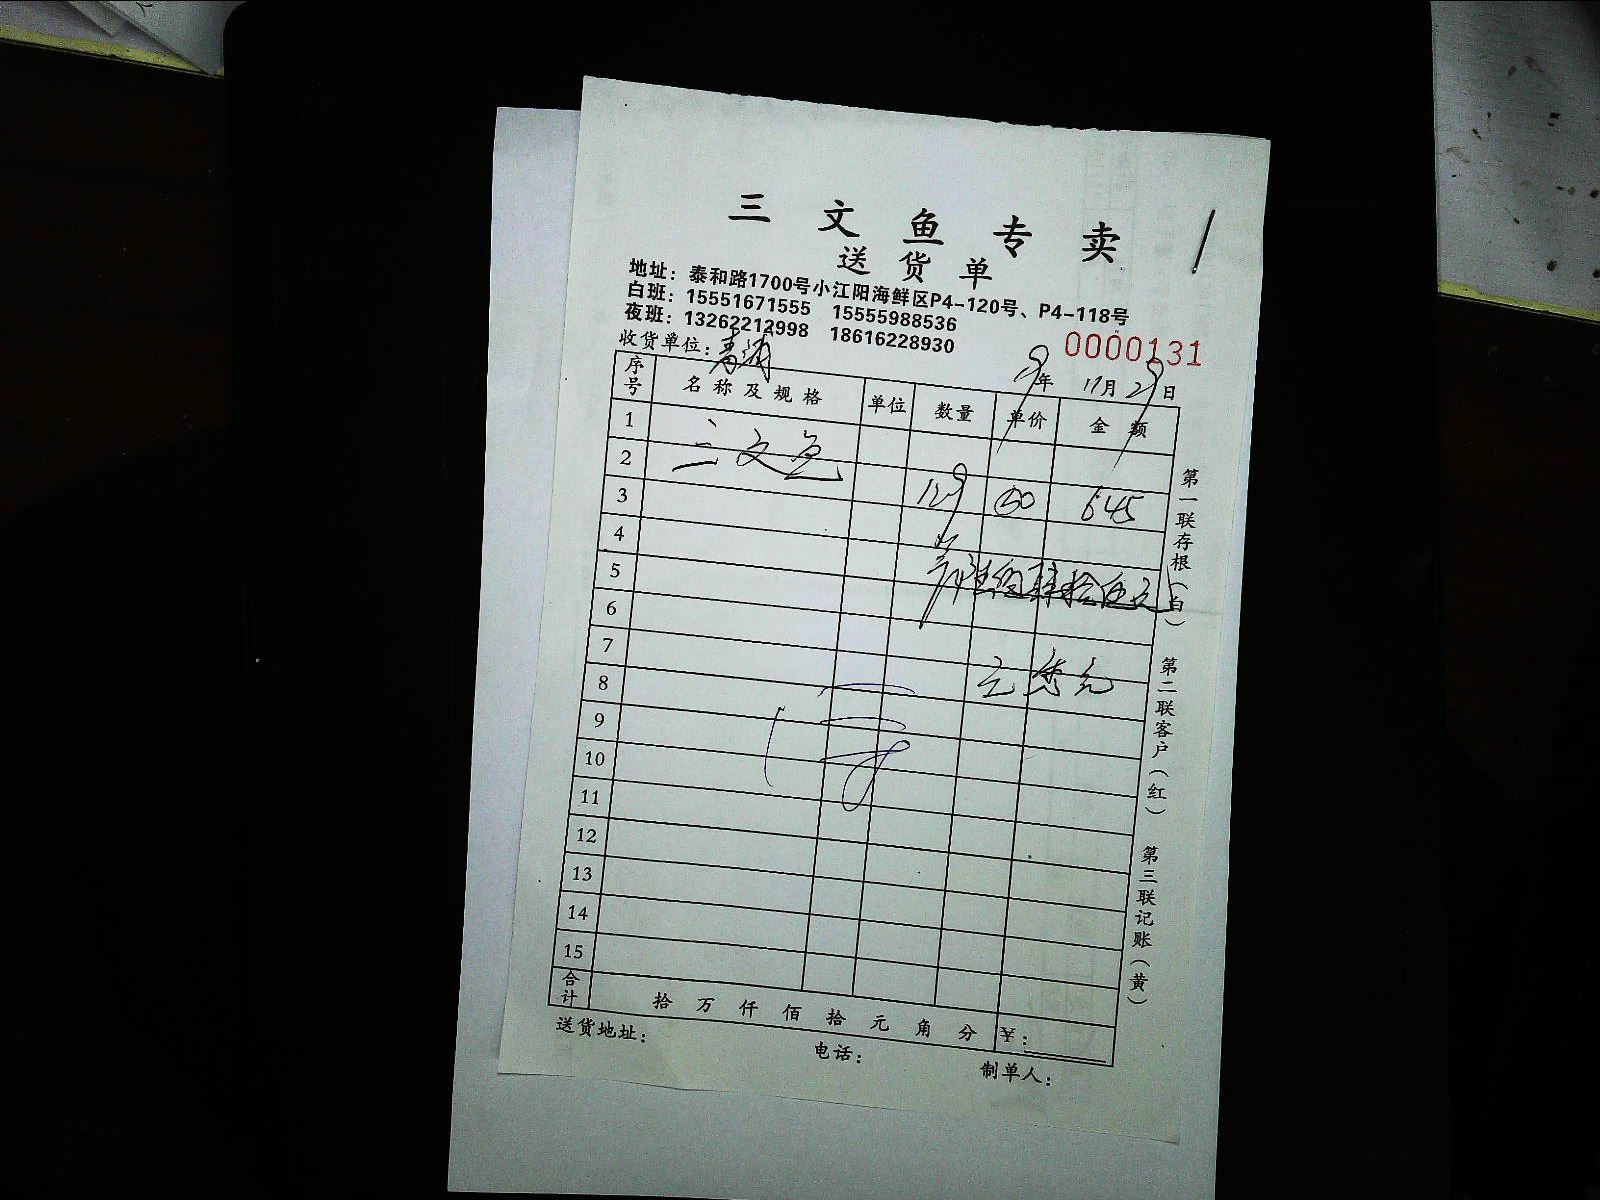 三文鱼专卖
送货单
地址：泰和路1700号小江阳海鲜区P4-120号、P4-118号
白班：15551671555 15555988536
夜班：13262212998 18616228930
0000131
收货单位：青浦
9年 11月 29日
序号 名称及规格 单位 数量 单价 金额
1
2 三文鱼
3 129 50 645
4
5 陆佰肆拾伍元
6
7
8
9
10
11
12
13
14
15
合计 拾 万 仟 佰 拾 元 角 分 ¥：
送货地址： 电话： 制单人：
第一联存根（白）
第二联客户（红）
第三联记账（黄）